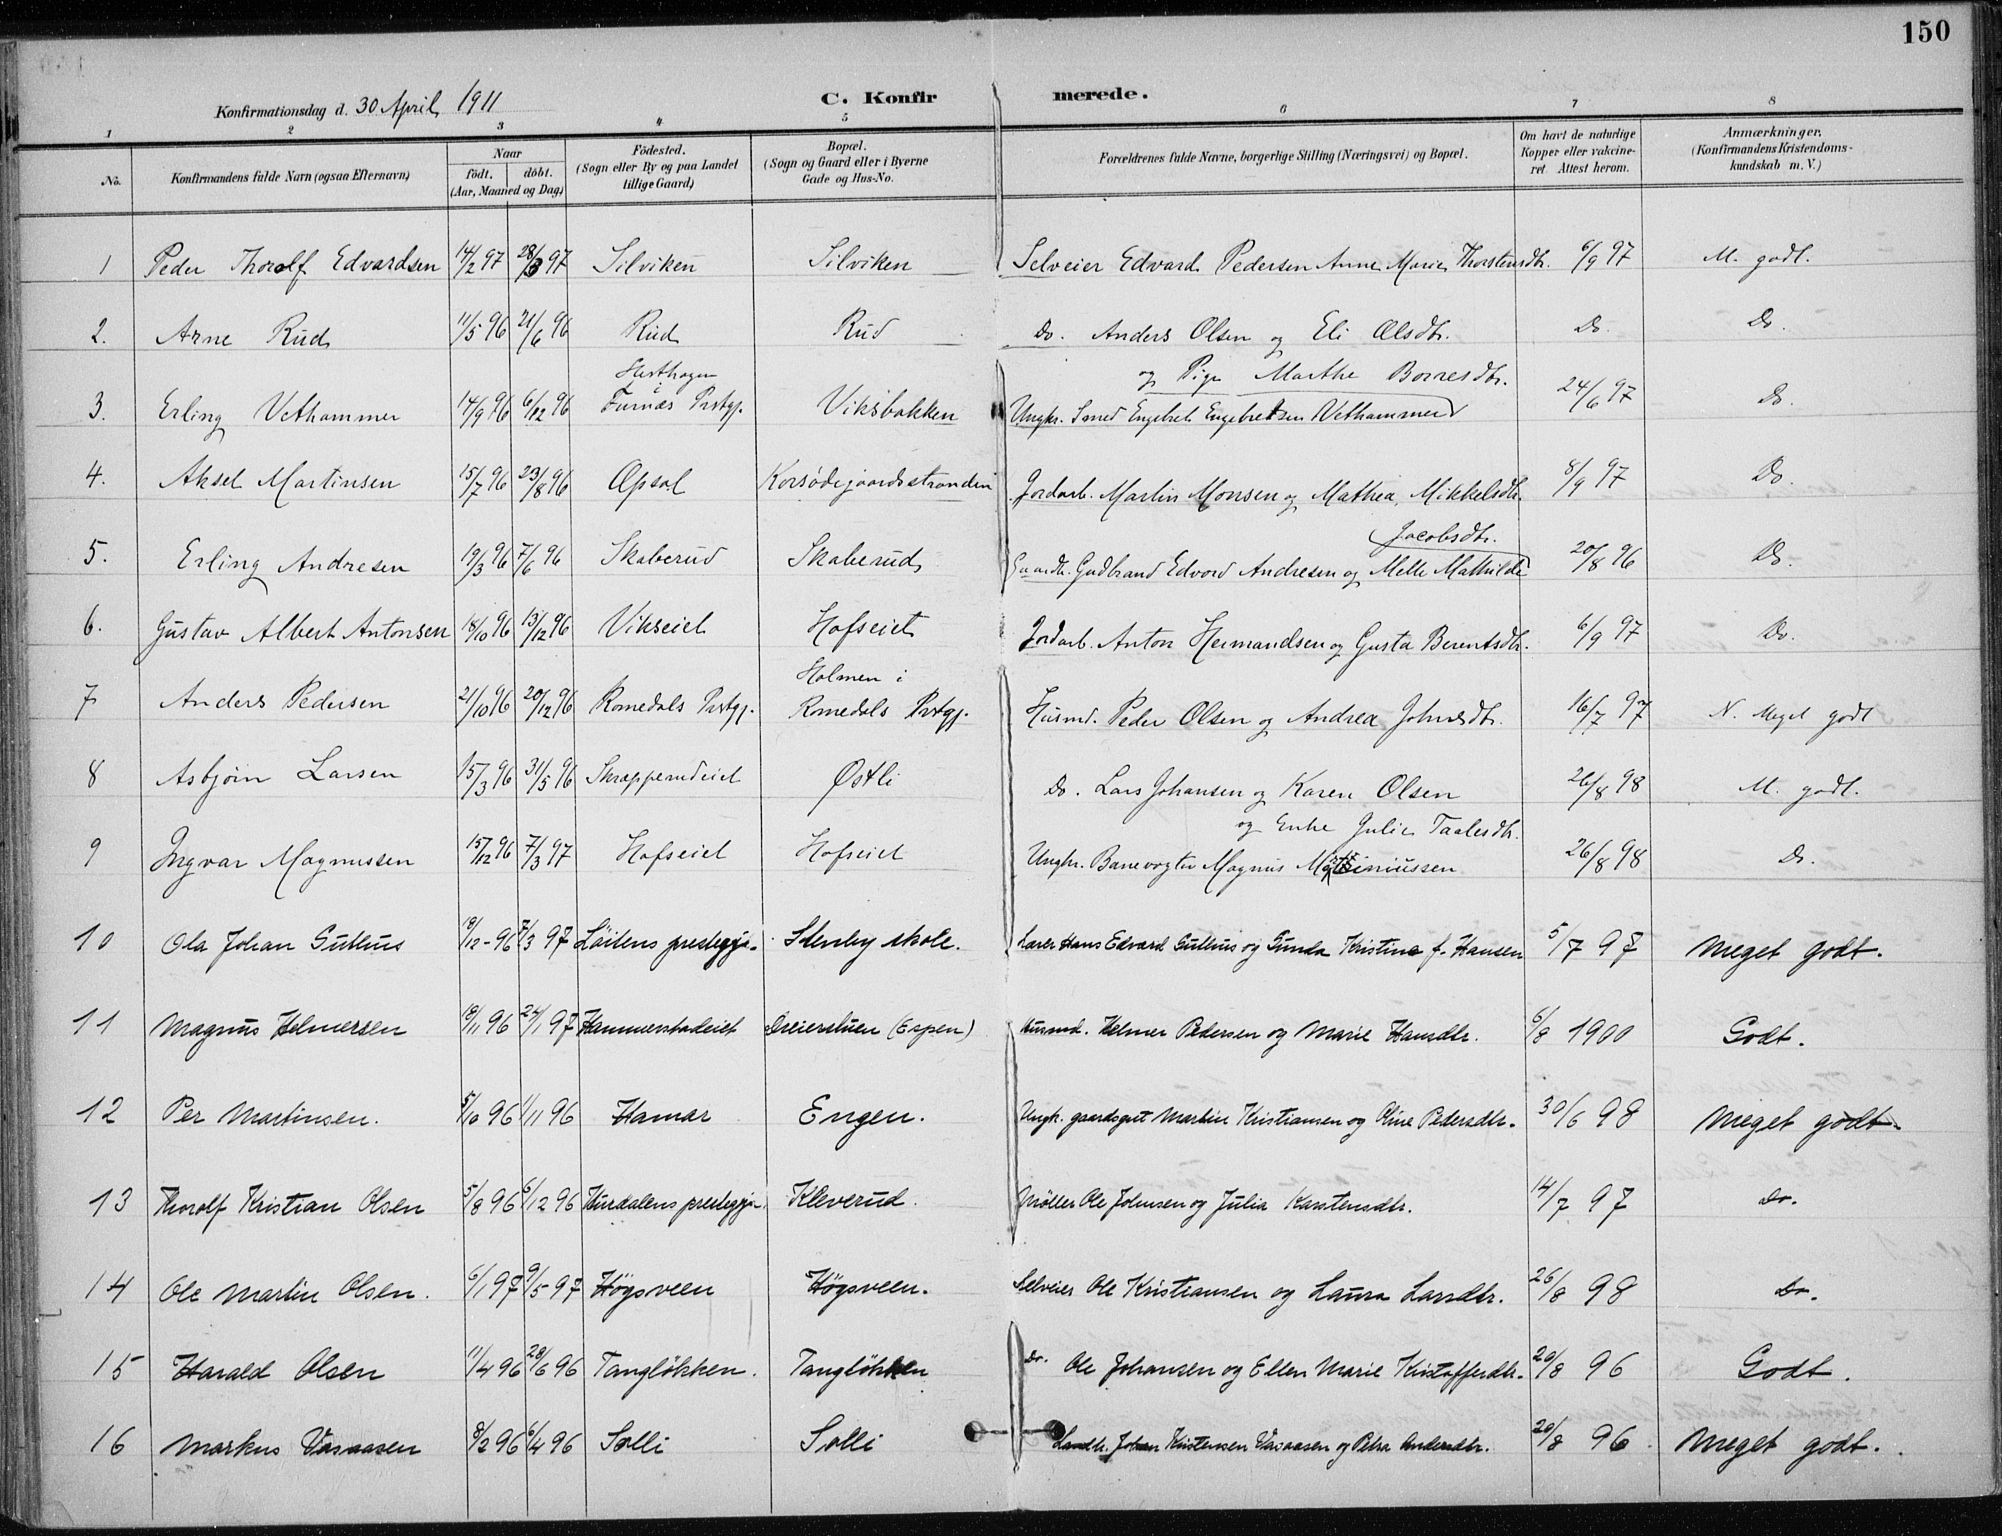 150
Konfirmationsdag d. 30 April 1911
C. Konfirmerede.
1 2 3 4 5 6 7 8
No. Konfirmandens fulde Navn (ogsaa Efternavn) Naar født. døbt. (Aar, Maaned og Dag) Födested. (Sogn eller By og paa Landet tillige Gaard) Bopæl. (Sogn og Gaard eller i Byerne Gade og Hus-No. Forældrenes fulde Navne, borgerlige Stilling (Næringsvei) og Bopæl. Om havt de naturlige Kopper eller vakcineret Attest herom. Anmærkninger. (Konfirmandens Kristendomskundskab m. V.)
1 Peder Thorolf Edvardsen 14/2 97 28/3 97 Silviken Silviken Selveier Edvard Pedersen Anne Marie Thorstensdtr. 6/9 97 M. godt.
2. Arne Rud 11/5 96 21/6 96 Rud Rud Do. Anders Olsen og Eli Olsdtr. Do. Do.
3. Erling Vethammer 14/9 96 6/12 96 Hesthagen i Furnæs Prstgj. Viksbakken Ungkr. Smed Engebret Engebretsen Vethammer og Pige Marthe Borresdtr. 24/6 97 Do.
4. Aksel Martinsen 15/7 96 23/8 96 Opsal Korsødegaardsstranden Jordarb. Martin Monsen og Mathea Mikkelsdtr. 8/9 97 Do.
5. Erling Andresen 19/3 96 7/6 96 Skaberud Skaberud Gaardbr. Gudbrand Edvard Andresen og Mette Mathilde Jacobsdtr. 20/8 96 Do.
6. Gustav Albert Antonsen 18/10 96 13/12 96 Vikseiet Hofseiet Jordarb. Anton Hermandsen og Gusta Berentsdtr. 6/9 97 Do.
7 Anders Pedersen 21/10 96 20/12 96 Romedals Prstgj. Holmen i Romedals Prstgj. Husmd. Peder Olsen og Andrea Johnsdtr. 16/7 97 N. Meget godt
8 Asbjörn Larsen 15/3 96 31/5 96 Skrapperudeiet Østli Do. Lars Johansen og Karen Olsen 26/8 98 M. godt.
9 Ingvar Magnussen 15/12 96 7/3 97 Hofseiet Hofseiet Ungkr. Banevogter Magnus og Enke Julie Taalesdtr. 26/8 98 Do.
10 Ola Johan Guthus 19/12-96 7/3 97 Löitens prestegja. Stenby skole. Lærer Hans Edvard Guthus og Gunda Kristine f. Hansen 5/7 97 Meget godt.
11 Magnus Helmersen 18/11 96 24/1 97 Hammerstadeiet Dreierstuen (Espen) Husmd. Helmer Pedersen og Marie Hansdtr. 6/8 1900 Godt.
12 Per Martinsen. 5/10 96 1/11 96 Hamar Engen. Ungk. gaardsgut Martin Kristiansen og Oline Pedersdtr. 30/6 98 Meget godt.
13 Thorolf Kristian Olsen 5/8 96 6/12 96 Hurdalens prestegja. Kleverud. Møller Ole Johnsen og Julia Karstensdtr. 14/7 97 Do.
14 Ole Martin Olsen. 6/1 97 9/5-97 Høgsveen Høgsveen. Selveier Ole Kristiansen og Laura Larsdtr. 26/8 98 Do.
15 Harald Olsen 11/4 96 28/6 96 Tangløkken. Tangløkken Do. Ole Johansen og Ellen Marie Kristofferdtr. 20/8 96 Godt.
16 Markus Vasaasen 8/2 96 6/4 96 Solli Solli Landh. Johan Kristensen Vasaasen og Petra Andersdtr. 20/8 96 Meget godt.